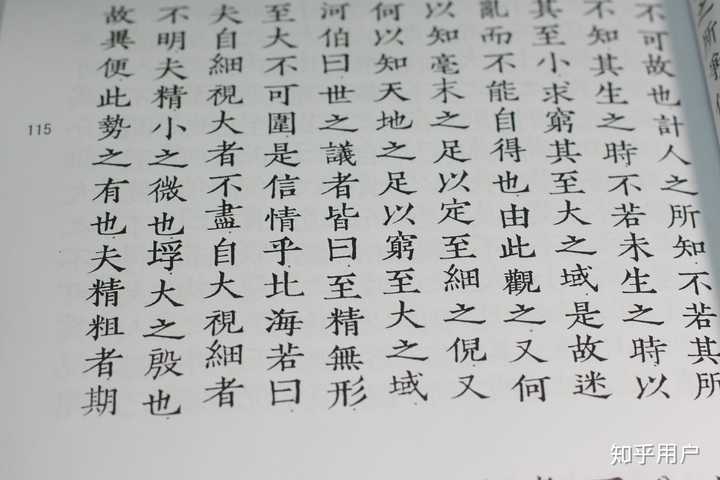 不可故也計人之所知不若其所
不知其生之時不若未生之時以
其至小求窮其至大之域是故迷
亂而不能自得也由此觀之又何
以知毫末之足以定至細之倪又
何以知天地之足以窮至大之域
河伯曰世之議者皆曰至精無形
至大不可圍是信情乎北海若曰
夫自細視大者不盡自大視細者
不明夫精小之微也垺大之殷也
故異便此勢之有也夫精粗者期
115
知乎用户